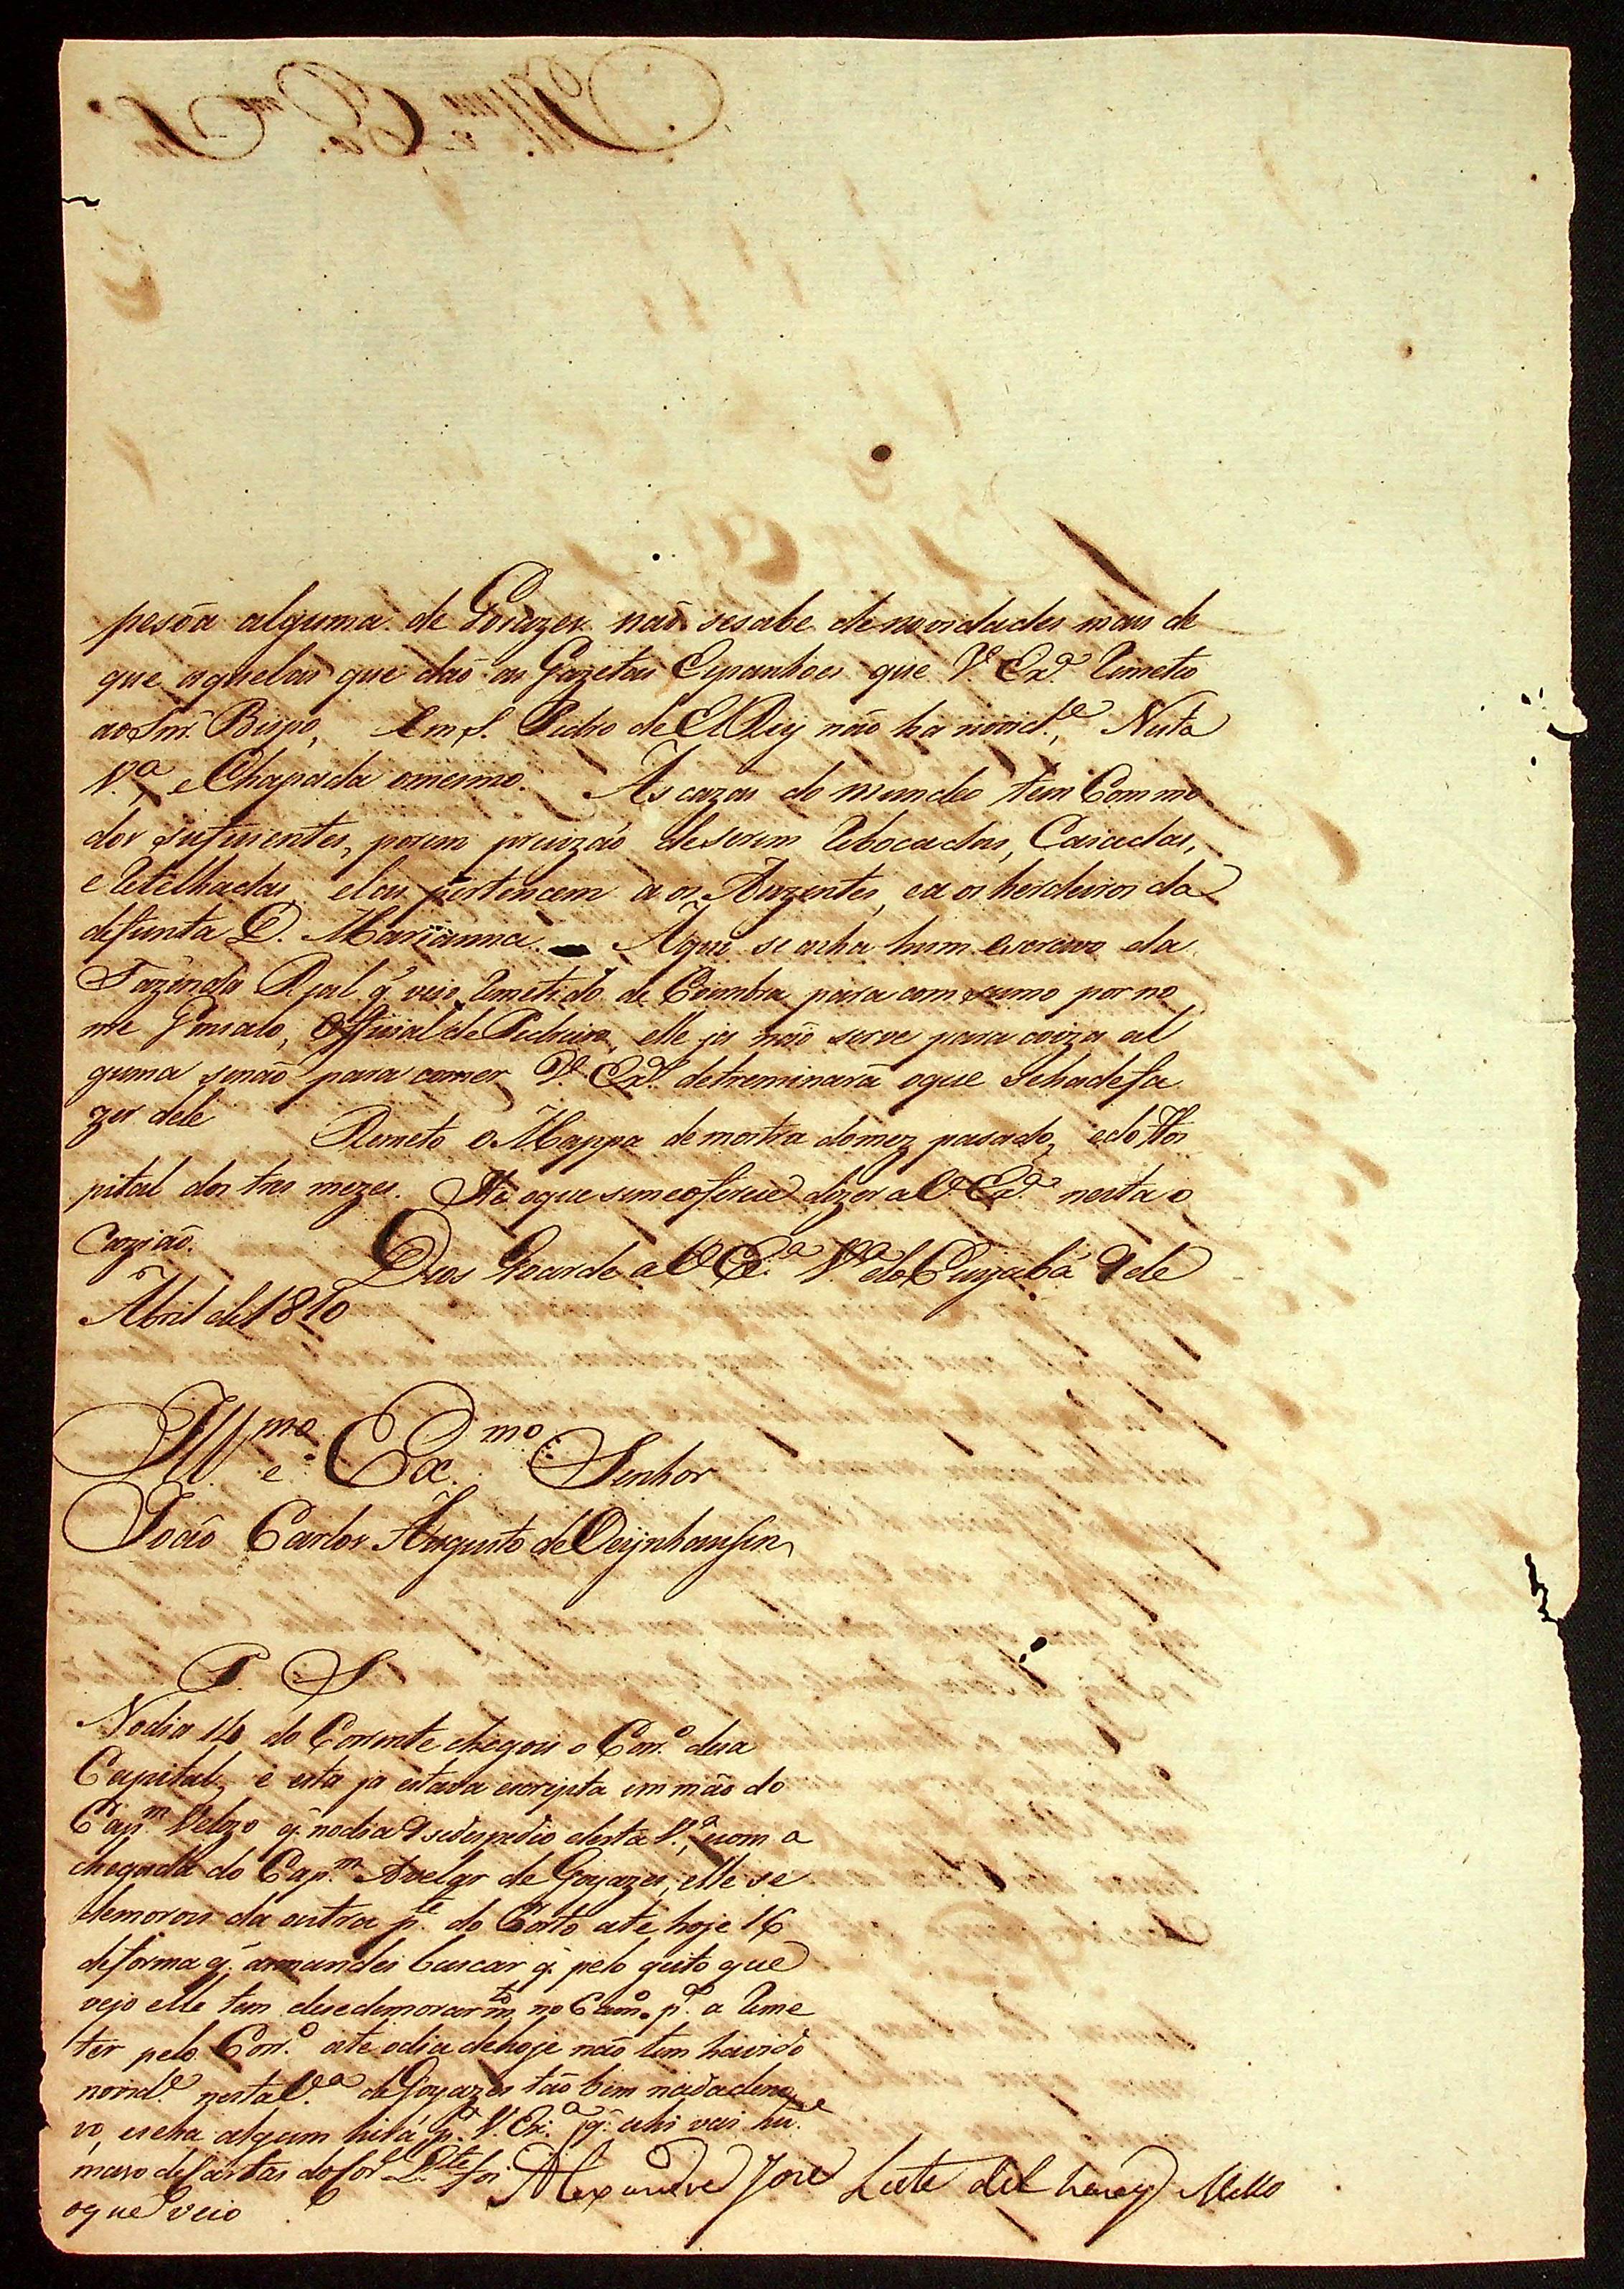 pesõa alguma de Goiazes não sesabe denovidades mais de
que aquelas que dão as Gazetas Espanhoes que V. Ex.ª Remeteo
ao Snr. Bispo, Em S. Pedro de El Rey não ha novid.e, Nesta
V.ª, e Chapada omesmo. As cazas do mundeo tem Commo
dos sufisientes, porem presizão deserem Rebocadas, Caiadas,
e Retelhadas elas pertencem a os Auzentes, ea os herdeiros da
defunta D. Marianna. Aqui se acha hum escravo da
Fazenda Rial q̃ veio Remetido de Coimbra para com sumo por no
me Gonsalo, Offisial de Pedreiro, elle ja não serve para coiza al
guma senão para comer V. Ex.ª detreminarã oque Sehadefa
zer dele Remeto o Mappa demostra domez pasado, edo Hos
pital dos tres mezes. He oque semeoferece dizer a V. Ex.ª nesta o
cazião. Deos Goarde a V. Ex.ª V.ª do Cuyabá 9 de
Abril de 1810
Ill.mo e Ex.mo Senhor
João Carlos Augusto de Oeÿnhausen
P. S.
Nodia 14 do Corrente chegou o Corr.o desa
Capital, e esta ja estava escripta em mão do
Cap.m Velozo q̃ nodia 9 sedespedio desta V.ª, ecom a
chegada do Cap.m Avelar de Goyazes, elle se
demorou da outra p.te do Porto ate hoje 16
deforma q̃ amandei buscar q̃ pelo geito que
vejo elle tem desedemorar m.to no Cam.o p.ª a Reme
ter pelo Corr.o ate odia dehoje não tem havido
novid.e nesta V.ª de Goyazes tão bem nadadeno
vo, eseha algum hirá p.ª V. Ex.ª q̃ ahi vai hũ
maso deCartas do
oque veio Alexandre Jose Leite de Mello